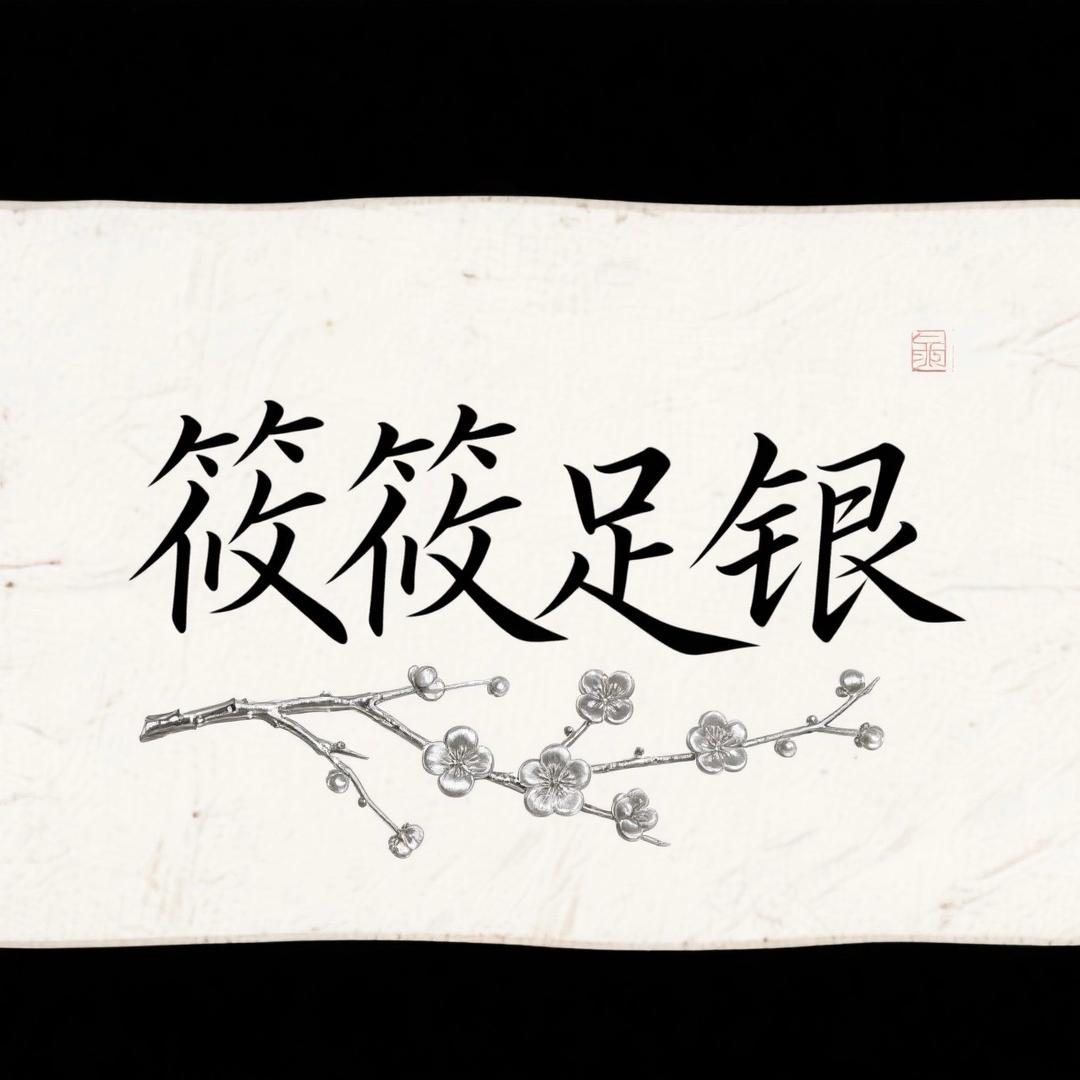 筱筱足银